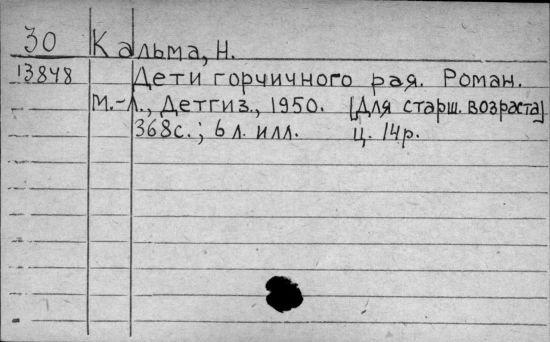 30 Кальма, Н.
13848 Дети горчичного рая. Роман.
М.-Л., Детгиз., 1950. [Для старш. возраста]
368с.; 6 л. илл. ц. 14р.